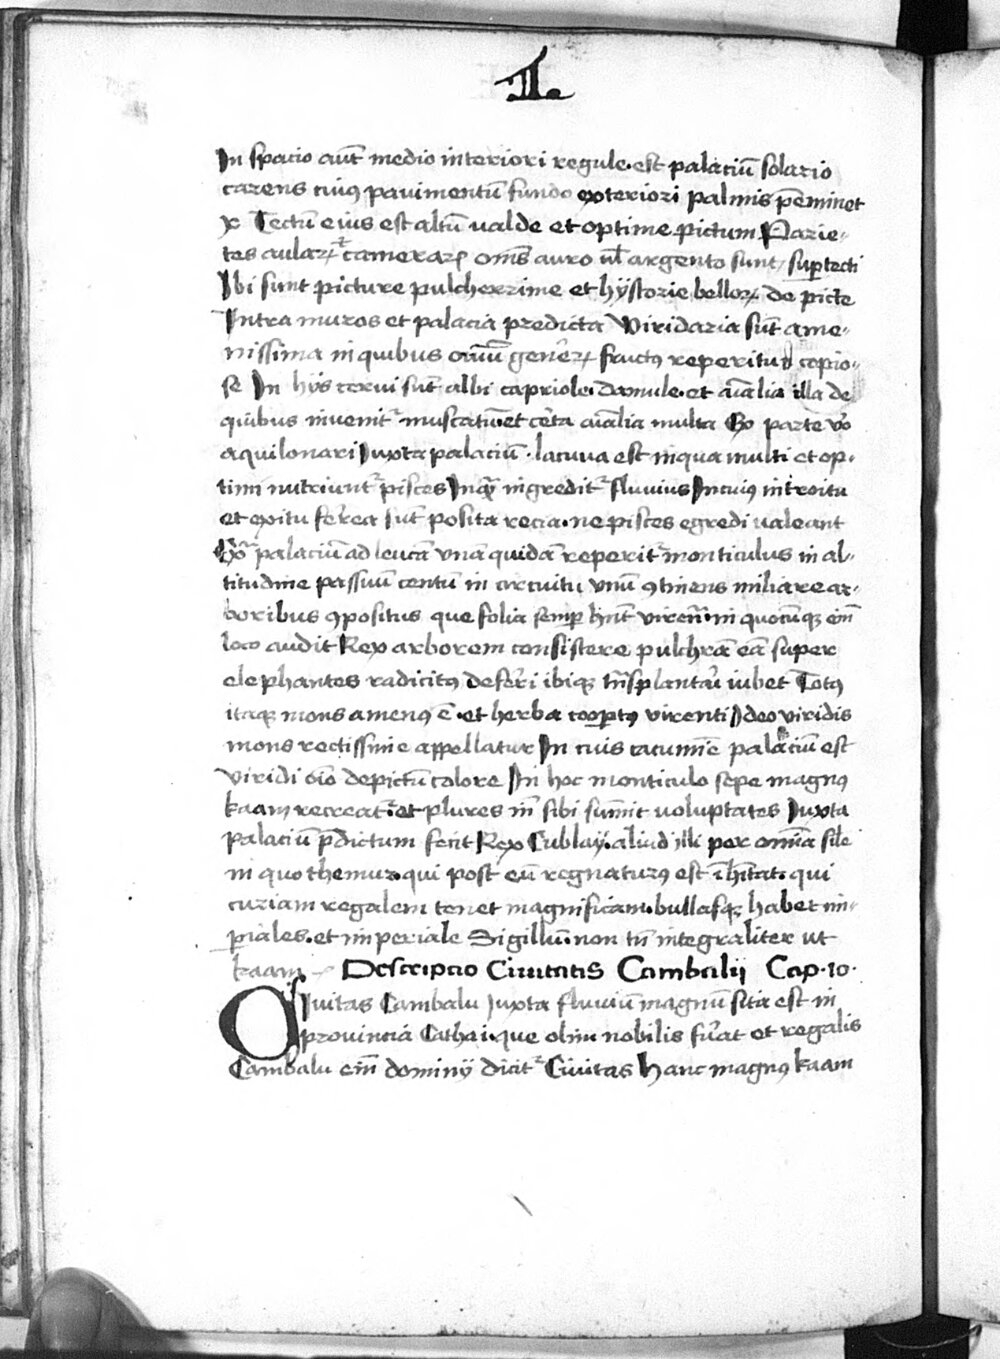 .II.
In spacio aut̄ medio interiori regule. est palaciū solario
carens cuiꝰ pavimentū fundo exteriori palmis p̄eminet
x Tectū eius est altū valde et optime pictum Parie-
tes aularꝝ ⁊ camerarꝝ om̄s auro ul̄ argento sunt suꝑtecti
Ibi sunt picture pulcherrime et hÿstorie bellorꝝ de picte
Intra muros et palacia predicta Viridaria sūt ame-
nissima in quibus om̄iū gener̄ꝝ fructꝰ reperitur copio-
se In hÿs cervi sūt albi caprioles damule. et aīalia illa de
quibus invenit᷑ muscatū. et cēta aīalia multa Ex parte v̄o
aquilonari Juxta palaciū. lacuna est in qua multi et op-
timi nutriunt᷑ pisces In quā ingredit᷑ fluvius In cuiꝰ introitu
et exitu ferrea sūt posita recia. ne pisces egredi valeant
Ext̄ palaciū ad leucā vnā quidā reperit᷑ monticulus in al-
titudine passuum centū in circuitu vnū ꝯtinens miliare ar-
boribus ꝯpositus que folia semꝑ hn̄t virencia in quocūqꝫ em̄
loco audit Rex arborem consistere pulchrā eā super
elephantes radicitꝰ deferri ibiqꝫ trn̄splantari iubet Totꝰ
itaqꝫ mons amenꝰ ē. et herba cooꝑtꝰ virenti Ideo viridis
mons rectissime appellatur In cuiꝰ cacumīe palaciū est
viridi oīo depictū colore In hoc monticulo sepe magnꝰ
kaam recreat᷑. et plures in̄ sibi sumit voluptates Juxta
palaciū p̄dictum fecit Rex Cublaÿ. aliud illi per omnia sile
in quo themur. qui post eū regnaturꝰ est īhītat. qui
curiam regalem tenet magnificam. bullasqꝫ habet im-
ꝑiales. et imperiale Sigillū. non tn̄ integraliter ut
kaam Descriptio Civitatis Cambalij Cap. 10.
Civitas Cambalu juxta fluviū magnū sita est in
provincia Cathai. que olim nobilis fuerat et regalis
Cambalu em̄ dominÿ dicit᷑ Civitas Hanc magnꝰ kaam